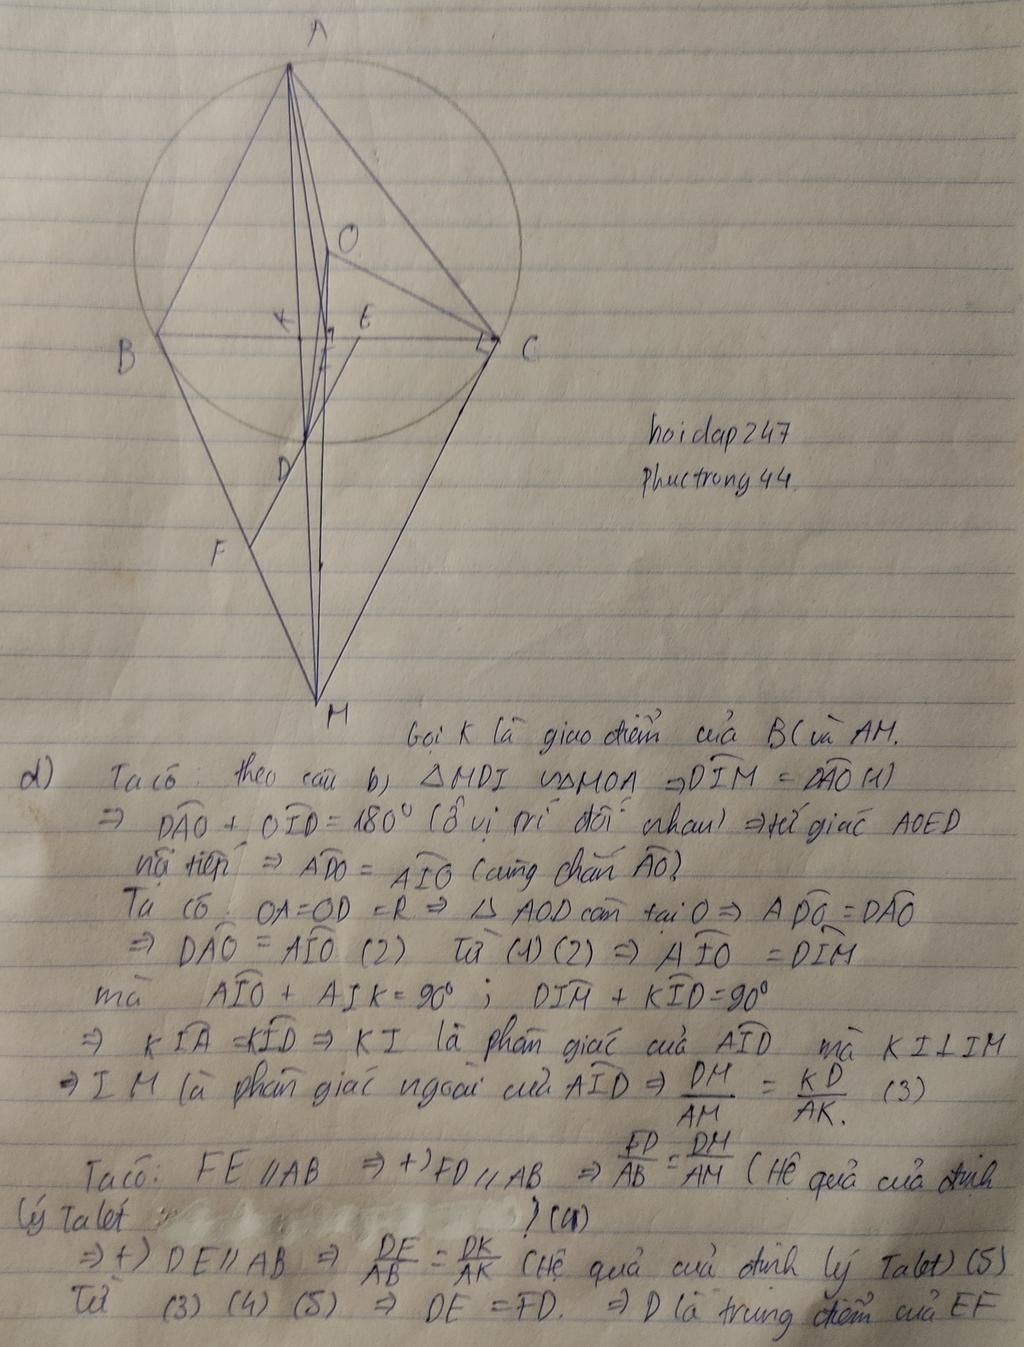 A
O
K
E
B
C
I
hoidap247
D
phuctrong44
F
M
Gọi K là giao điểm của BC và AM.
d) Ta có: theo câu b) △MDI ∽ △MOA ⇒ DÎM = DÂO (1)
⇒ DÂO + OÎD = 180° (ở vị trí đối nhau) ⇒ tứ giác AOED
nội tiếp ⇒ ADO = AIO (cùng chắn AO)
Ta có: OA = OD = R ⇒ △ AOD cân tại O ⇒ ADO = DÂO
⇒ DÂO = AÎO (2) Từ (1) (2) ⇒ AÎO = DÎM
mà AÎO + AIK = 90° ; DIM + KÎD = 90°
⇒ KÎA = KÎD ⇒ KI là phân giác của AÎD mà KI ⊥ IM
⇒ IM là phân giác ngoài của AÎD ⇒ DM/AM = KD/AK. (3)
Ta có: FE // AB ⇒ +) FD // AB ⇒ FD/AB = DM/AM (Hệ quả của định
lý Talet) (4)
⇒ +) DE // AB ⇒ DE/AB = DK/AK (Hệ quả của định lý Talet) (5)
Từ (3) (4) (5) ⇒ DE = FD. ⇒ D là trung điểm của EF